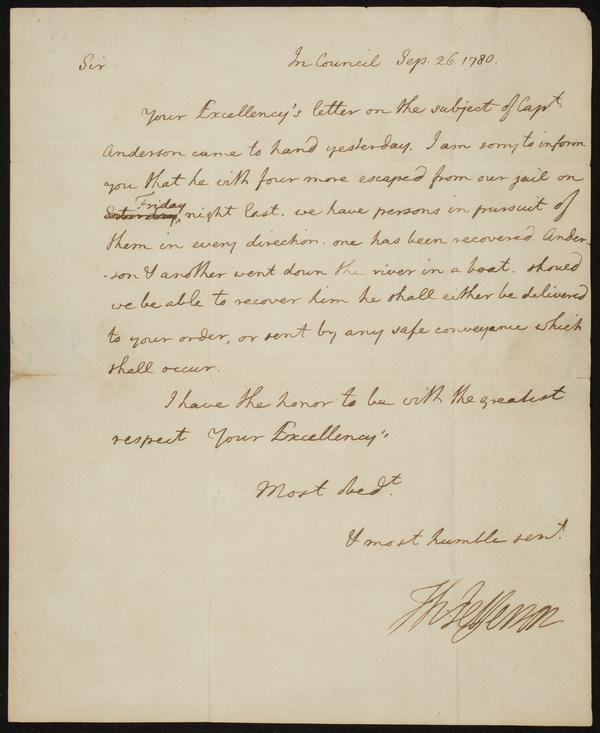 Sir In Council Sep. 26. 1780.
Your Excellency's letter on the subject of Capt.
Anderson came to hand yesterday. I am sorry to inform
you that he with four more escaped from our jail on
Friday
Saturday night last. we have persons in pursuit of
them in every direction. one has been recovered. Ander-
-son & another went down the river in a boat. should
we be able to recover him he shall either be delivered
to your order, or sent by any safe conveyance which
shall occur.
I have the honor to be with the greatest
respect Your Excellency's
Most obedt.
& most humble servt.
Th: Jefferson